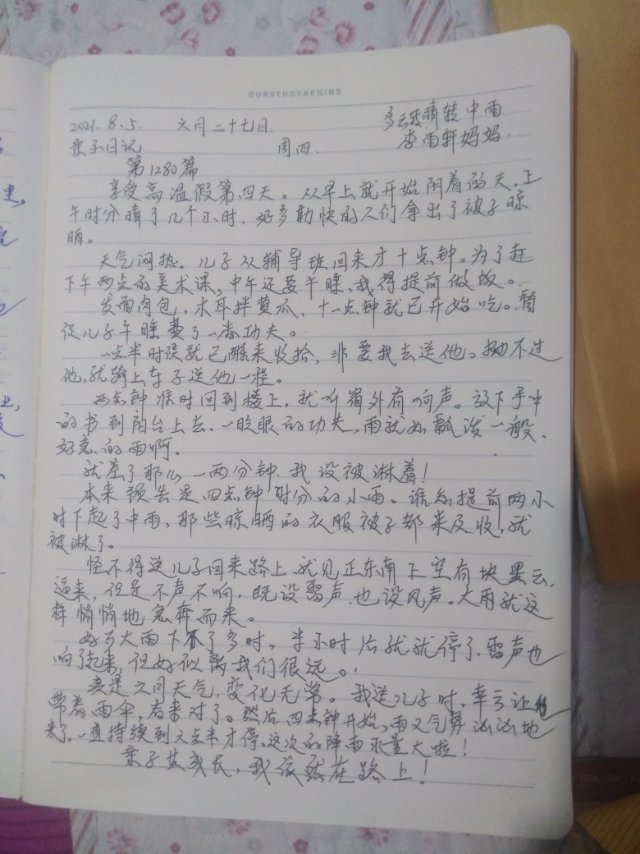 OURSTUDYBEGINS
2021.8.5. 六月二十七日. 多云转晴转中雨
亲子日记 周四. 李雨轩妈妈.
第1280篇
享受高温假第四天。从早上就开始阴着的天,上
午时分晴了几个小时,好多勤快的人们拿出了被子晾
晒。
天气闷热。儿子从辅导班回来才十点钟。为了赶
下午两点的美术课,中午还要午睡,我得提前做饭。
发面肉包,木耳拌黄瓜、十一点钟就已开始吃。督
促儿子午睡费了一番功夫。
一点半时候就已醒来收拾,非要我去送他。拗不过
他,就骑上车子送他一程。
两点钟准时回到楼上,就听窗外有响声。放下手中
的书到阳台上去、一眨眼的功夫,雨就如瓢泼一般、
好急的雨啊。
就差了那么一两分钟,我没被淋着!
本来预告是四点钟时分的小雨。谁知提前两小
时下起了中雨,那些晾晒的衣服被子都来及收,就
被淋了。
怪不得送儿子回来路上,就见正东南下空有块黑云,
逼来,但是不声不响,既没雷声,也没风声。大雨就这
样悄悄地急奔而来。
好在大雨下不了多时,半小时后就就停了、雷声也
响了起来,但好似离我们很远。
真是六月天气,变化无常。我送儿子时,幸亏让他
带着雨伞,看来对了。然后四点钟开始,雨又气势汹汹地
来了,一直持续到六点半才停,这次的降雨水量大啦!
亲子共成长,我依然在路上!